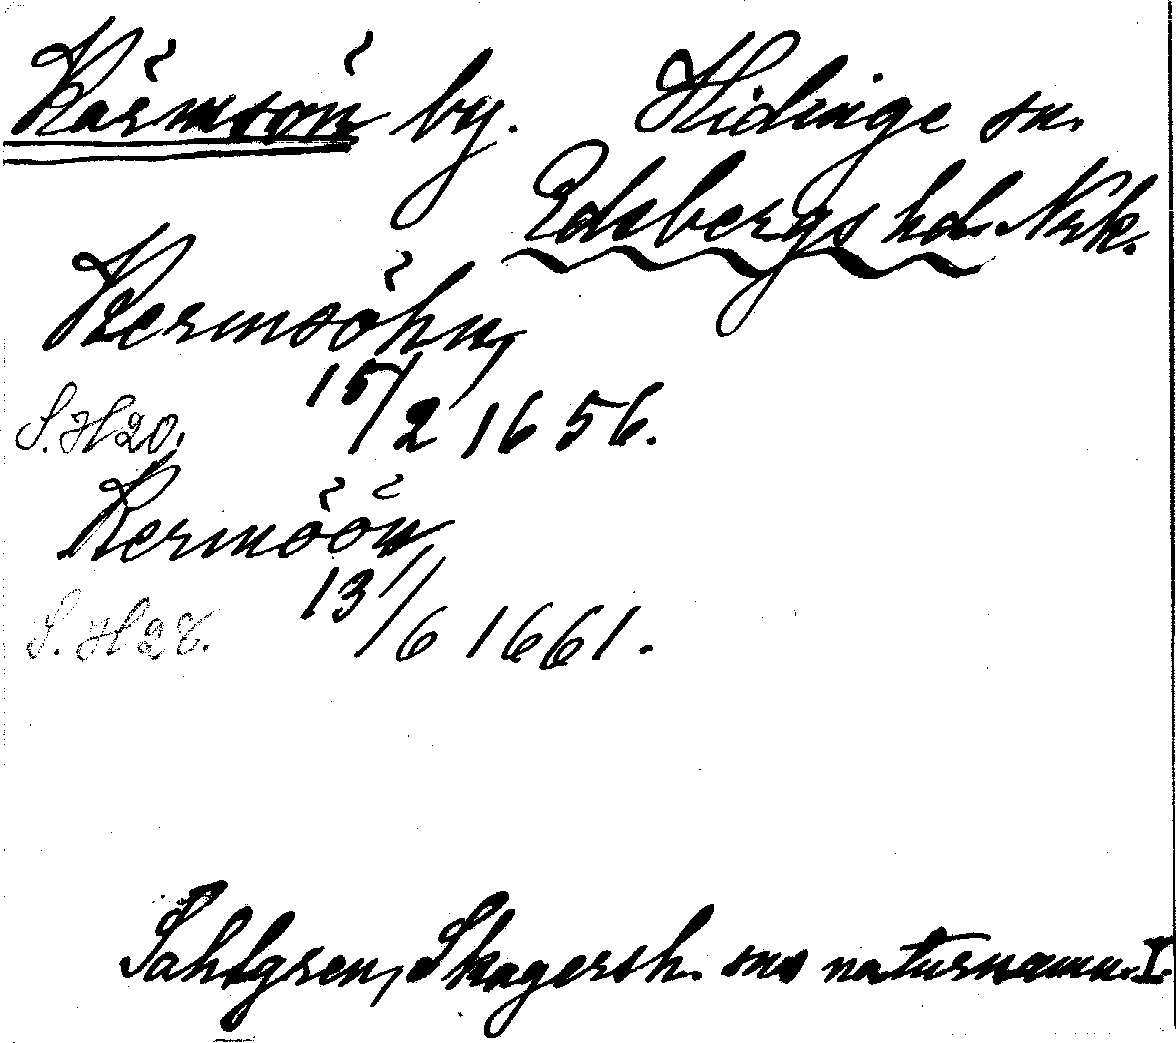 Kärmsön by. Hidinge sn.
Edsbergs hd. Nrk.
Kermsöhn,
15/2 1656.
S. H 20.
Kermöön,
13/6 1661.
S. H 28.
Sahlgren, Skagersh. sns naturnamn. I